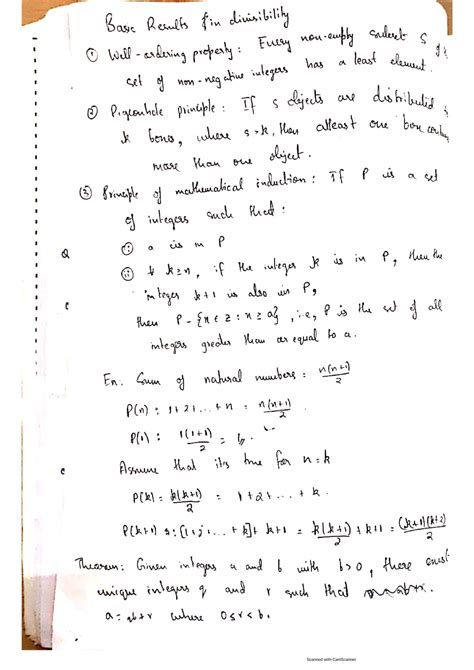 Basic Results in divisibility
① Well-ordering property: Every non-empty subset S of
set of non-negative integers has a least element.
② Pigeonhole principle: If s objects are distributed
k boxes, where s>k, then atleast one box
more than one object.
③ Principle of mathematical induction: If P is a set
of integers such that:
① a is in P
② ∀ k≥n, if the integer k is in P, then the
integer k+1 is also in P,
then P = {x ∈ z : x ≥ a}, i,e, P is the set of all
integers greater than or equal to a.
Ex: Sum of natural numbers = n(n+1)/2
P(n): 1+2+...+n = n(n+1)/2
P(1): 1(1+1)/2 =
Assume that its true for n=k
P(k) = k(k+1)/2 = 1+2+...+k
P(k+1) = k+1 = k(k+1)/2 + k+1 = (k+1)(k+2)/2
Theorem: Given integers a and b with b>0, there exist
unique integers q and r such that
a= qb+r where 0≤r<b.
Scanned with CamScanner